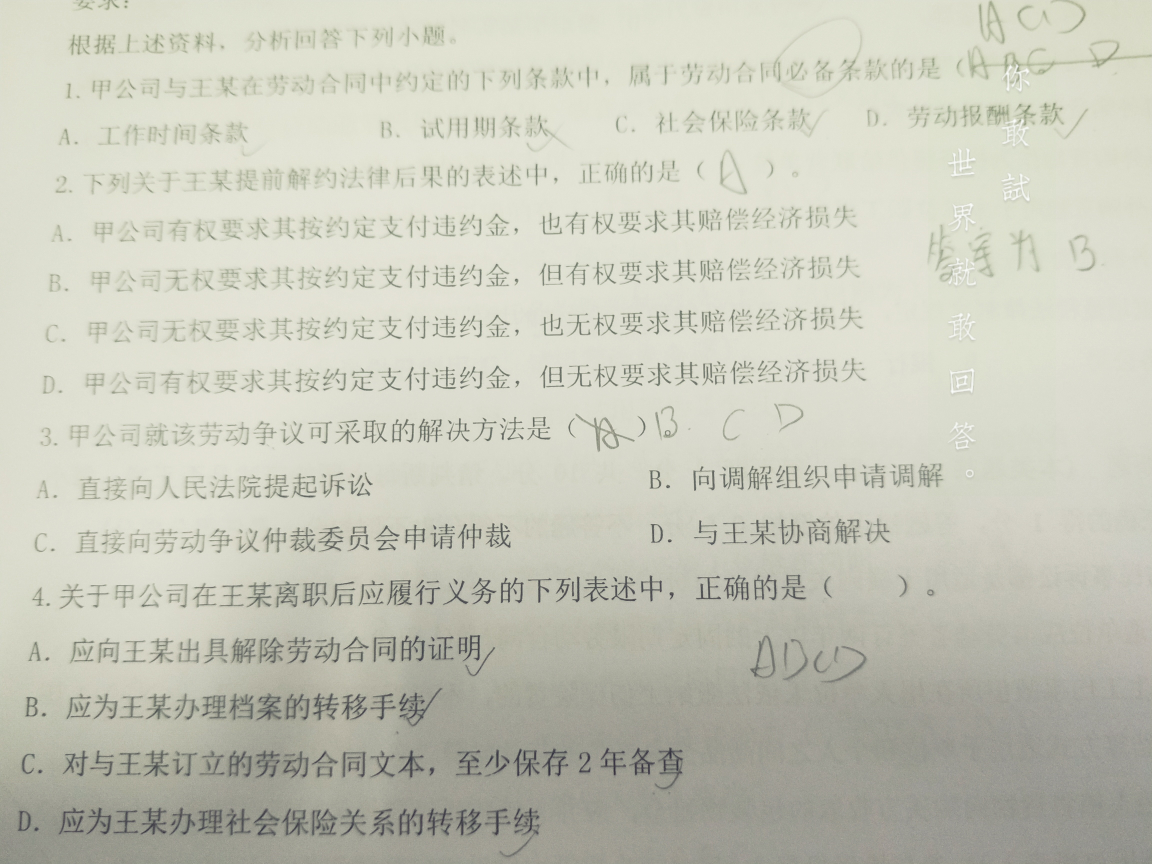 要求:
根据上述资料，分析回答下列小题。
ACD
1.甲公司与王某在劳动合同中约定的下列条款中，属于劳动合同必备条款的是（ABCD
A．工作时间条款 B．试用期条款 C．社会保险条款 D．劳动报酬条款
2.下列关于王某提前解约法律后果的表述中，正确的是（A）。
A．甲公司有权要求其按约定支付违约金，也有权要求其赔偿经济损失
B．甲公司无权要求其按约定支付违约金，但有权要求其赔偿经济损失
答案为B.
C．甲公司无权要求其按约定支付违约金，也无权要求其赔偿经济损失
D．甲公司有权要求其按约定支付违约金，但无权要求其赔偿经济损失
3.甲公司就该劳动争议可采取的解决方法是（A）。B. C D
A．直接向人民法院提起诉讼 B．向调解组织申请调解
C．直接向劳动争议仲裁委员会申请仲裁 D．与王某协商解决
4.关于甲公司在王某离职后应履行义务的下列表述中，正确的是（ ）。
A．应向王某出具解除劳动合同的证明
ABCD
B．应为王某办理档案的转移手续
C．对与王某订立的劳动合同文本，至少保存2年备查
D．应为王某办理社会保险关系的转移手续
你敢試
世界就敢回答。